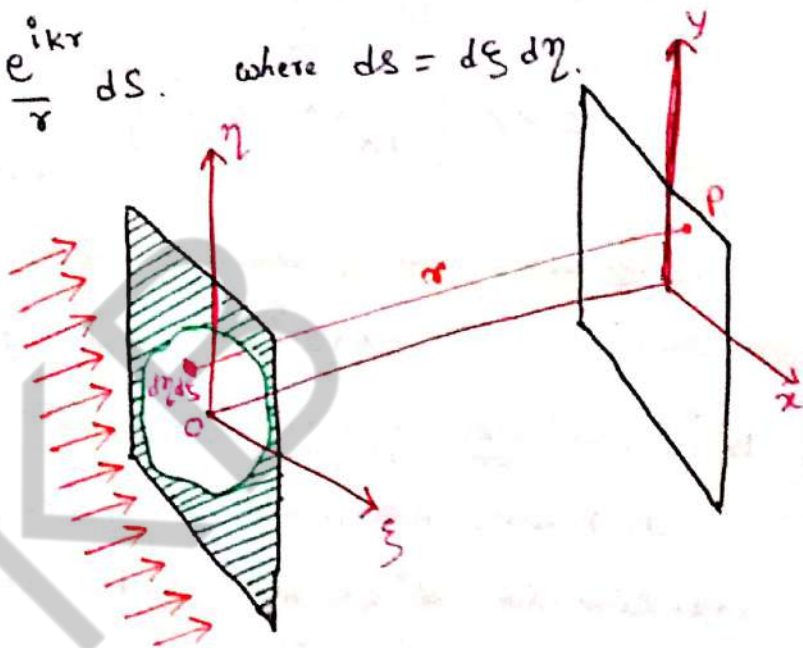 e^{ikr}/r ds. where ds = dξ dη.
y
η
P
r
dη dξ
O
x
ξ